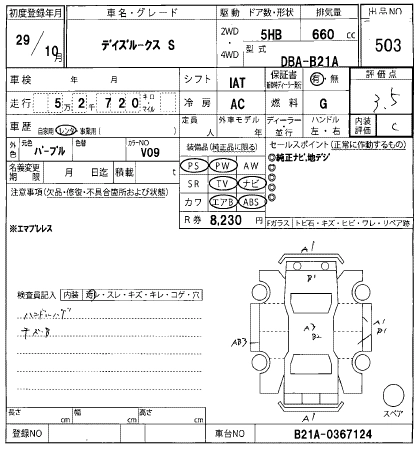 初度登録年月 車名・グレード 駆動 ドア数・形状 排気量 出品NO
29/10月 デイズルークス S 2WD・4WD 5HB 660 cc 503
型式 DBA-B21A
車検 年 月 シフト IAT 保証書 有・無 評価点
走行 5万2千720 キロ・マイル 冷房 AC 燃料 G 3.5
車歴 自家用・レンタ・事業用( ) 定員 人 外車モデル 年 ディーラー・並行 ハンドル 左・右 内装評価 C
外色 元色 パープル 色替 カラーNO V09
装備品(純正品に限る) セールスポイント(正常に動作するもの)
名義変更期限 月 日迄 積載 t
PS PW AW ◎純正ナビ,地デジ
注意事項(欠品・修復・不具合箇所および状態)
SR TV ナビ ◎
カワ エアB ABS ◎
※エマブレス
R券 8,230 円
Fガラス トビ石・キズ・ヒビ・ワレ・リペア跡
A1
B1
検査員記入 内装 ・スレ・キズ・キレ・コゲ・穴
ハンドルハゲ
キズ・B
A3
B2
A1
B1
AB3
A1
スペア
長さ cm 幅 cm 高さ cm
登録NO 車台NO B21A-0367124